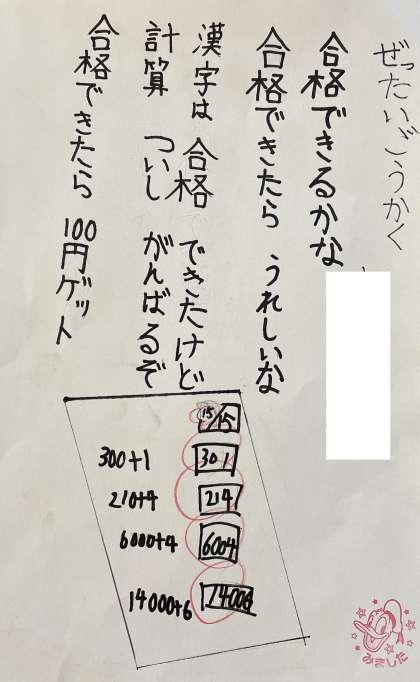 ぜったいごうかく
合格できるかな
合格できたら うれしいな
漢字は 合格 できたけど
計算 ついし がんばるぞ
合格できたら 100円ゲット
15/15
300+1 301
210+4 214
6000+4 6004
14000+6 14006
みました